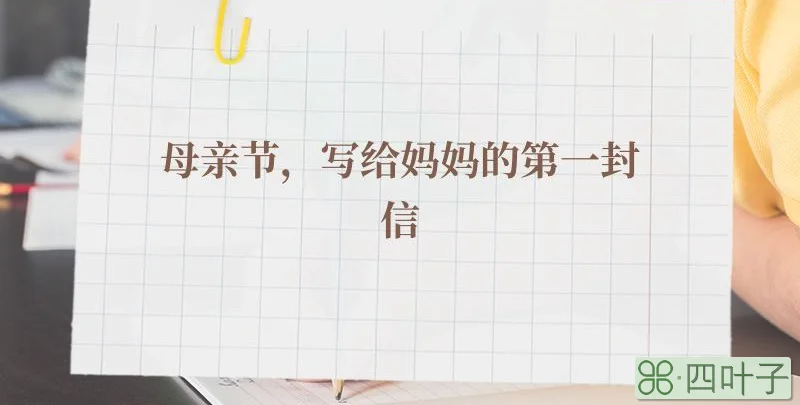 母亲节，写给妈妈的第一封
信
⌘·四叶子